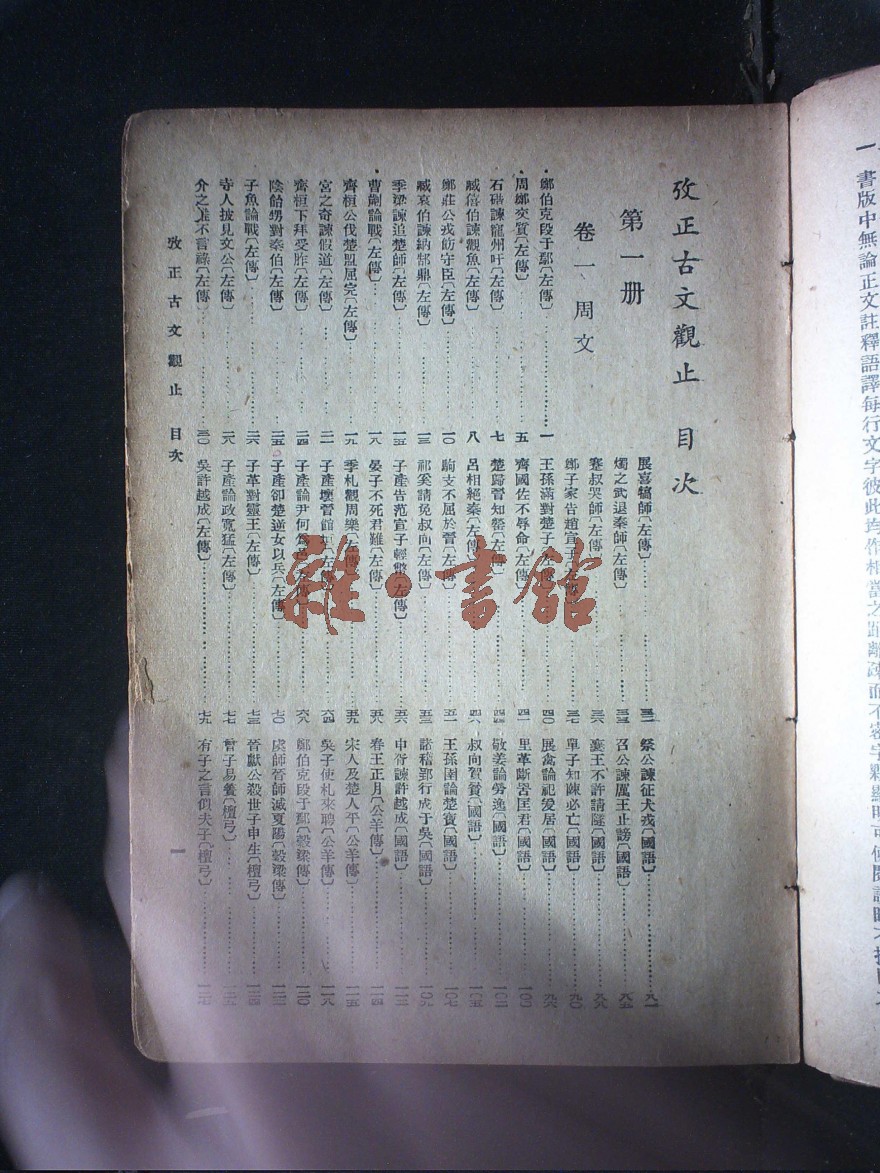 攷正古文觀止　目次
第一册
卷一、周文
鄭伯克段于鄢〔左傳〕……一
周鄭交質〔左傳〕……五
石碏諫寵州吁〔左傳〕……七
臧僖伯諫觀魚〔左傳〕……八
鄭莊公戒飭守臣〔左傳〕……一〇
臧哀伯諫納郜鼎〔左傳〕……一三
季梁諫追楚師〔左傳〕……一五
曹劌論戰〔左傳〕……一八
齊桓公伐楚盟屈完〔左傳〕……一九
宮之奇諫假道〔左傳〕……二一
齊桓下拜受胙〔左傳〕……二四
陰飴甥對秦伯〔左傳〕……二五
子魚論戰〔左傳〕……二六
寺人披見文公〔左傳〕……二八
介之推不言祿〔左傳〕……三〇
展喜犒師〔左傳〕……三二
燭之武退秦師〔左傳〕……
蹇叔哭師〔左傳〕……三六
鄭子家告趙宣子〔左傳〕……三七
王孫滿對楚子〔左傳〕……四〇
齊國佐不辱命〔左傳〕……四一
楚歸晉知罃〔左傳〕……四四
呂相絕秦〔左傳〕……四六
駒支不屈於晉〔左傳〕……五一
祁奚請免叔向〔左傳〕……五三
子產告范宣子輕幣〔左傳〕……五六
晏子不死君難〔左傳〕……五八
季札觀周樂〔左傳〕……五九
子產壞晉館垣〔左傳〕……六四
子產論尹何爲邑〔左傳〕……六八
子產卻楚逆女以兵〔左傳〕……七〇
子革對靈王〔左傳〕……七三
子產論政寬猛〔左傳〕……七七
吳許越成〔左傳〕……七九
祭公諫征犬戎〔國語〕……九一
召公諫厲王止謗〔國語〕……八五
襄王不許請隧〔國語〕……八八
單子知陳必亡〔國語〕……九〇
展禽論祀爰居〔國語〕……九六
里革斷罟匡君〔國語〕……一〇〇
敬姜論勞逸〔國語〕……一〇二
叔向賀貧〔國語〕……一〇五
王孫圉論楚寶〔國語〕……一〇七
諸稽郢行成于吳〔國語〕……一〇九
申胥諫許越成〔國語〕……一一二
春王正月〔公羊傳〕……一一四
宋人及楚人平〔公羊傳〕……一一五
吳子使札來聘〔公羊傳〕……一一八
鄭伯克段于鄢〔穀梁傳〕……一二〇
虞師晉師滅夏陽〔穀梁傳〕……一二二
晉獻公殺世子申生〔檀弓〕……一二四
曾子易簀〔檀弓〕……一二五
有子之言似夫子〔檀弓〕……一二七
攷正古文觀止　目次
一
雜·書館
一　書版中無論正文註釋語譯每行文字彼此均作相當之距離疎而不密字夥顯明可使閱讀時不